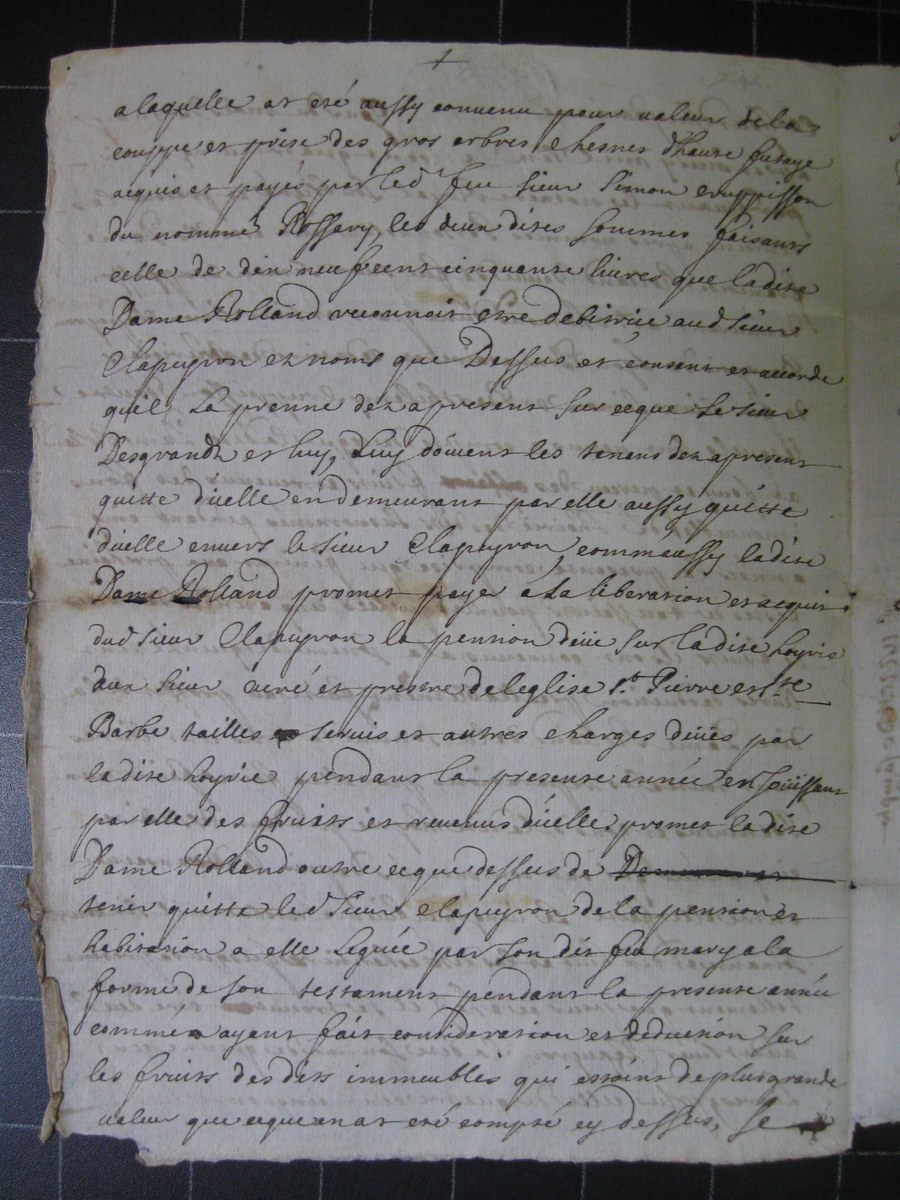 +
alaquelle at eté aussy convenu pour valeur dela
couppe et prise des gros arbres chesnes d'haute futaye
acquis et payés par led.t feu sieur Simon
du nommé Rossary, les deux dites sommes faisants
celle de dix neuf cent cinquante livres que ladite
Dame Rolland reconnoit etre debitrice aud sieur
Clapeyron ez noms que Dessus et consent et accorde
quil la prenne dez apresent sur ceque le sieur
Desgrands et luy, luy doivent les tenens dez apresent
quitte d'icelle en demeurant par elle aussy quitte
d'icelle envers le sieur Clapeyron, comm'aussy ladite
Dame Rolland promet payer à la liberation et acquit
dud sieur Clapeyron la pension deüe sur ladite hoyrie
aux sieur curé et prestre de leglise S.t Pierre et S.te
Barbe tailles servis et autres charges deües par
ladite hoyrie pendant la presente année en joüissant
par elle des fruits et revenus d'icelle. promet ladite
Dame Rolland outre ceque dessus de
tenir quitte led sieur Clapeyron de la pension et
habitation a elle leguée par son dit feu mary a la
forme de son testament pendant la presente année
comme ayant fait consideration et deduction sur
les fruits desdits immeubles qui etoint de plus grande
valeur que ceque en at eté compté cy dessus, se